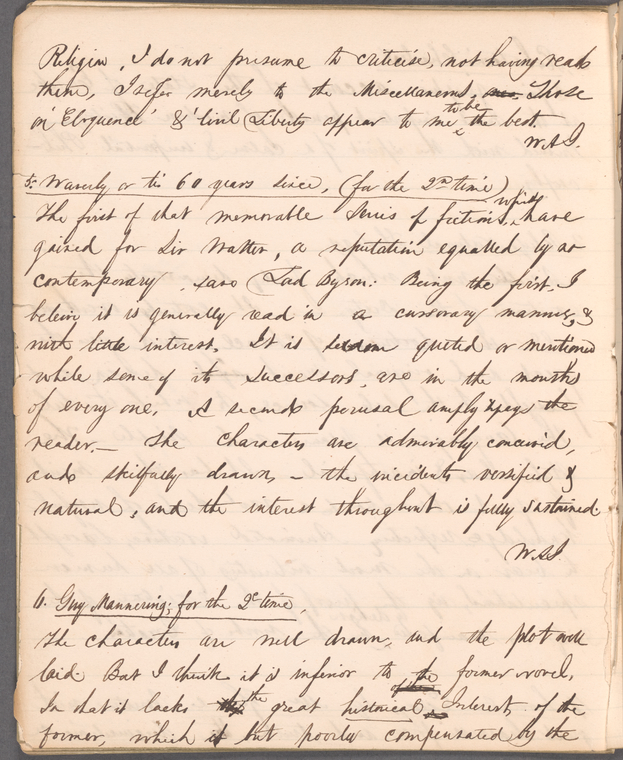 Religion, I do not presume to criticise, not having read
them, I refer merely to the Miscellaneous, Those
on 'Eloquence' & 'Civil Liberty appear to me to be the best.
W.A.J.
5- Waverly or tis 60 years since, (for the 2nd time)
The first of that memorable Series of fictions, which have
gained for Sir Walter, a reputation equalled by no
contemporary, save Lord Byron: Being the first, I
believe it is generally read in a cursorary manner, &
with little interest. It is seldom quoted or mentioned
while some of its successors, are in the mouths
of every one. A second perusal amply repays the
reader.— The characters are admirably conceived,
and skilfully drawn — the incidents versified &
natural, and the interest throughout is fully sustained.
W.A.J.
6. Guy Mannering; for the 2d time.
The characters are well drawn, and the plot well
laid. But I think it is inferior to the former novel,
In that it lacks the great historical Interest of the
former, which is but poorly compensated by the